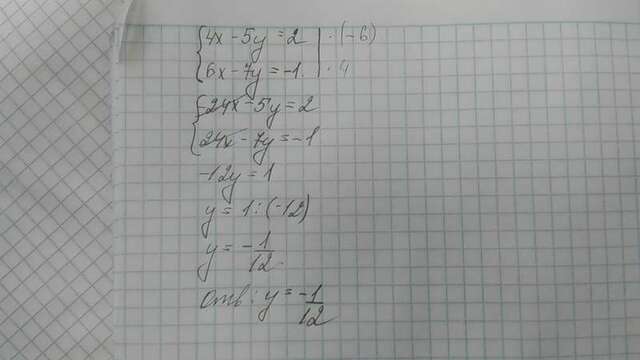 {4x - 5y = 2 | · (-6)
{6x - 7y = -1 | · 4
{-24x - 5y = 2
{24x - 7y = -1
-12y = 1
y = 1 : (-12)
y = - 1/12.
Отв: y = - 1/12